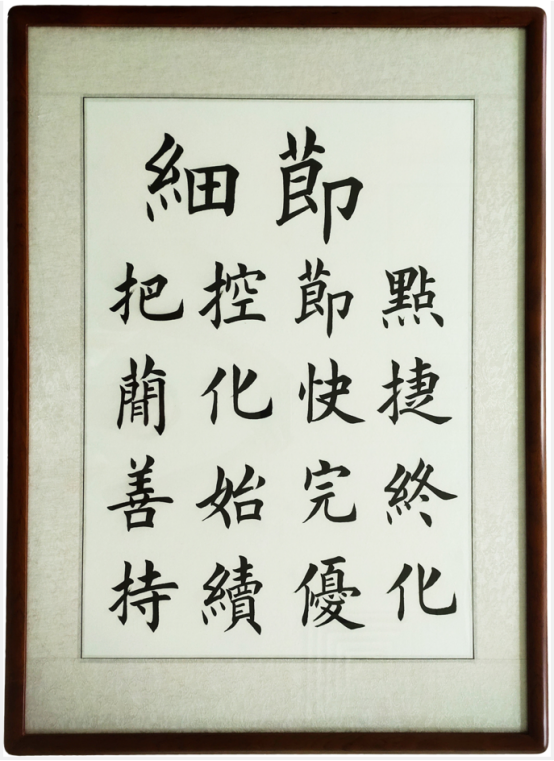 細節
把控節點
蕑化快捷
善始完終
持續優化